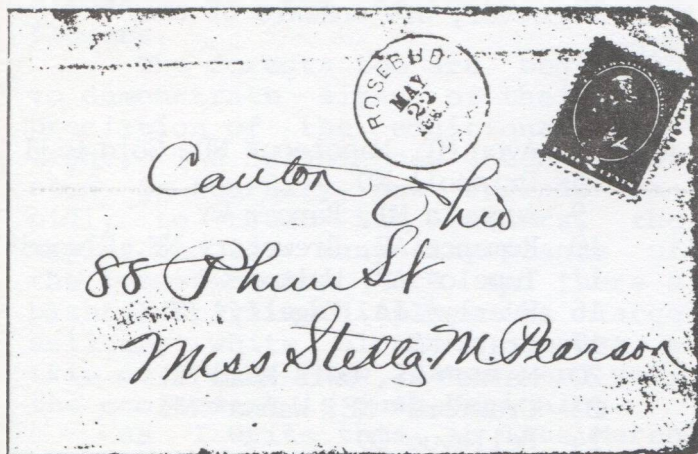 ROSEBUD
MAY
23
Canton Ohio
88 Plum St
Miss Stella. M. Pearson